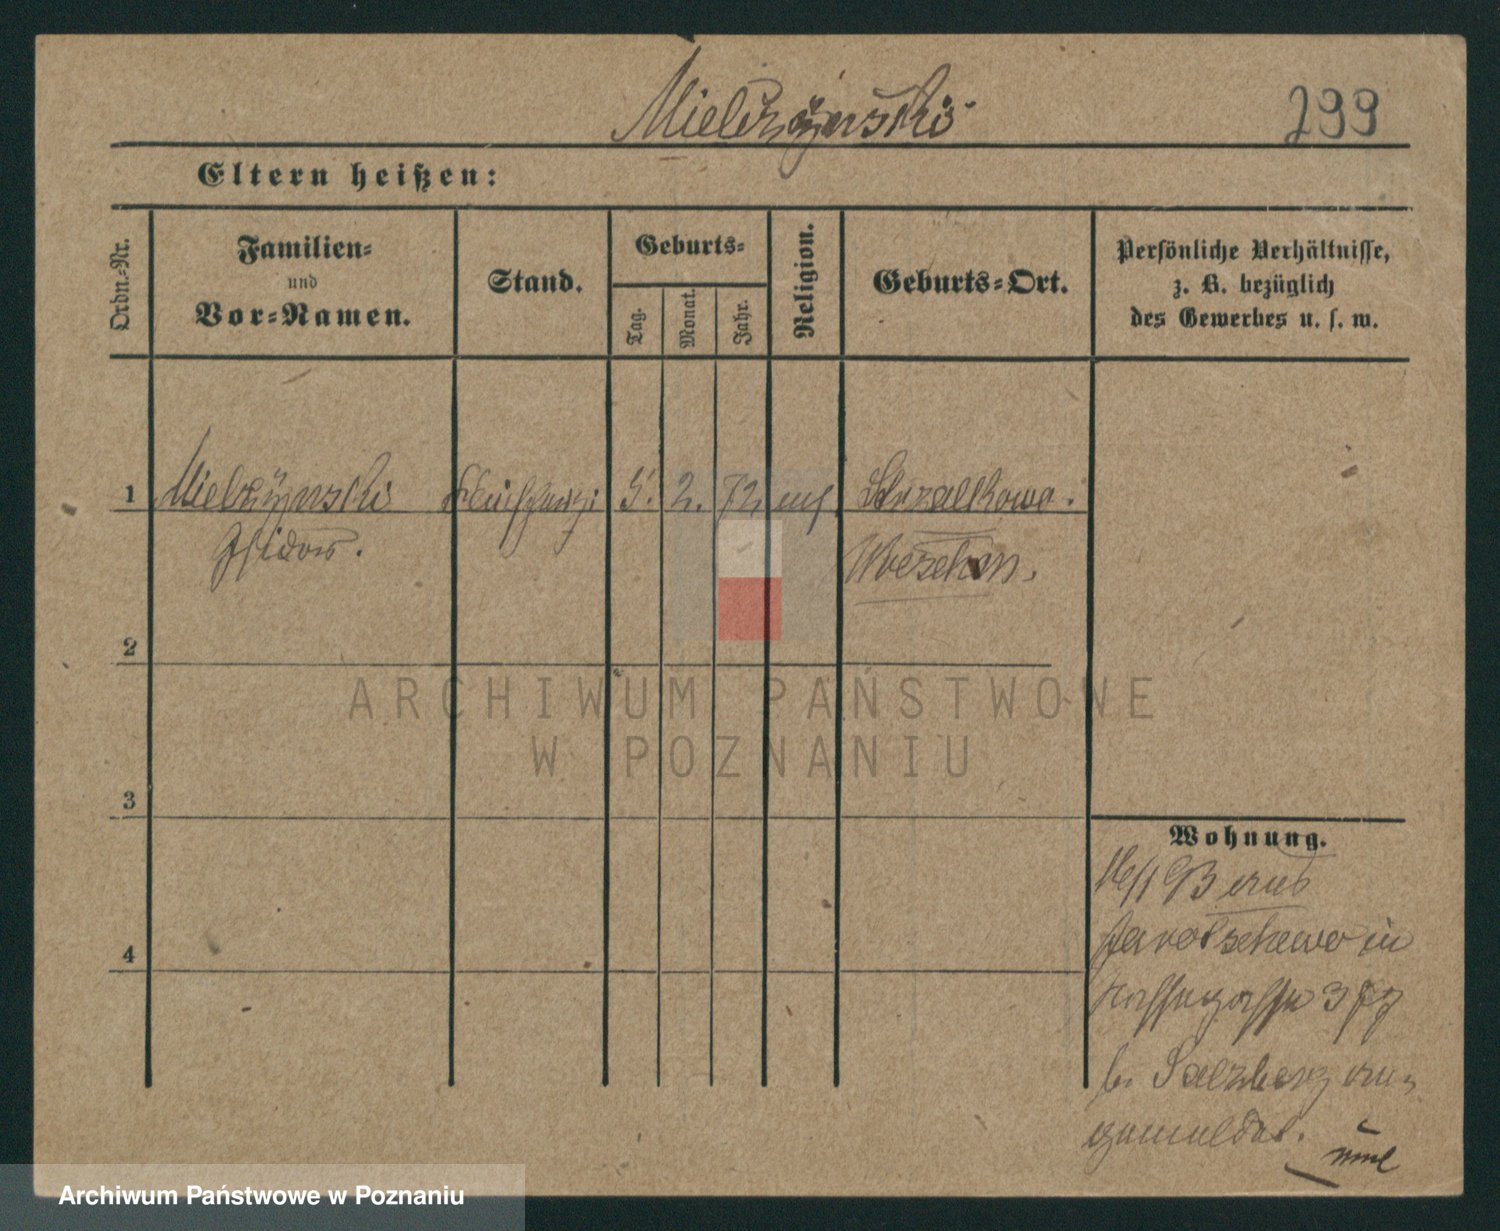 Mielczynski
299
Eltern heißen:
Ordn.-Nr.
Familien-
und
Vor-Namen.
Stand.
Geburts-
Tag.
Monat.
Jahr.
Religion.
Geburts-Ort.
Persönliche Verhältnisse,
z. B. bezüglich
des Gewerbes u. s. w.
1
Mielczynski
5. 2. 72
Strzalkowo.
Isidor.
Wreschen.
2
3
4
Wohnung.
16/1 93 aus
in
3
bei Salzberg an-
gemeldet.
ARCHIWUM PAŃSTWOWE
W POZNANIU
Archiwum Państwowe w Poznaniu